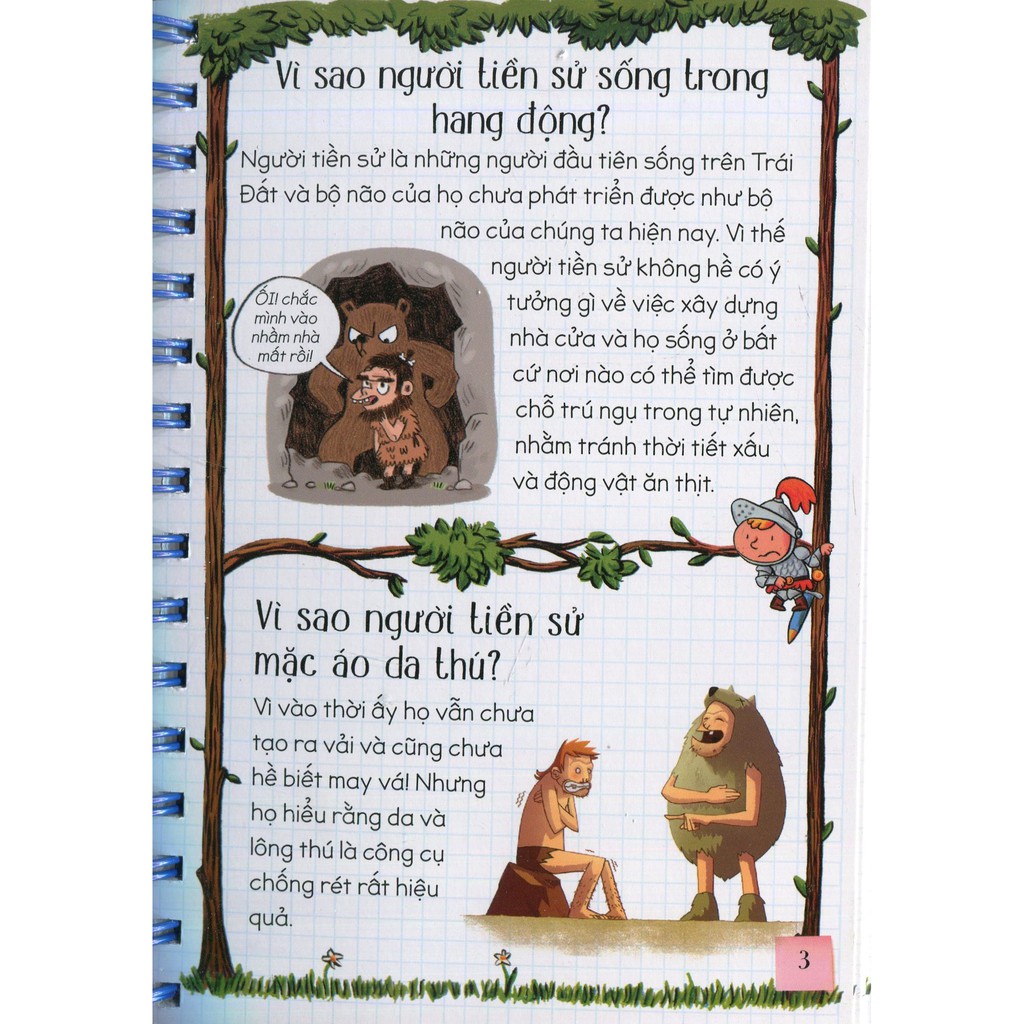 Vì sao người tiền sử sống trong
hang động?
Người tiền sử là những người đầu tiên sống trên Trái
Đất và bộ não của họ chưa phát triển được như bộ
não của chúng ta hiện nay. Vì thế
người tiền sử không hề có ý
tưởng gì về việc xây dựng
nhà cửa và họ sống ở bất
cứ nơi nào có thể tìm được
chỗ trú ngụ trong tự nhiên,
nhằm tránh thời tiết xấu
và động vật ăn thịt.
ỐI! chắc
mình vào
nhầm nhà
mất rồi!
Vì sao người tiền sử
mặc áo da thú?
Vì vào thời ấy họ vẫn chưa
tạo ra vải và cũng chưa
hề biết may vá! Nhưng
họ hiểu rằng da và
lông thú là công cụ
chống rét rất hiệu
quả.
3